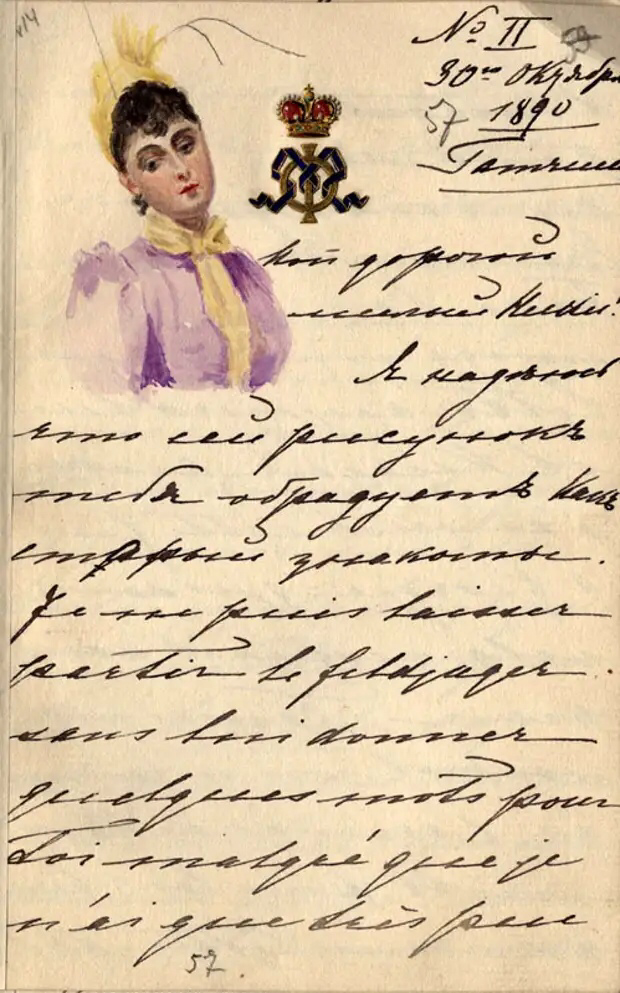 № II
30го Октября
1890
57
Гатчина
Мой дорогой
милый Ники!
Я надѣюсь
что сей рисунокъ
тебя обрадуетъ какъ
старый знакомый.
Je ne puis laisser
partir le feldjäger
sans lui donner
quelques mots pour
Toi malgré que je
n'ai que très peu
57.